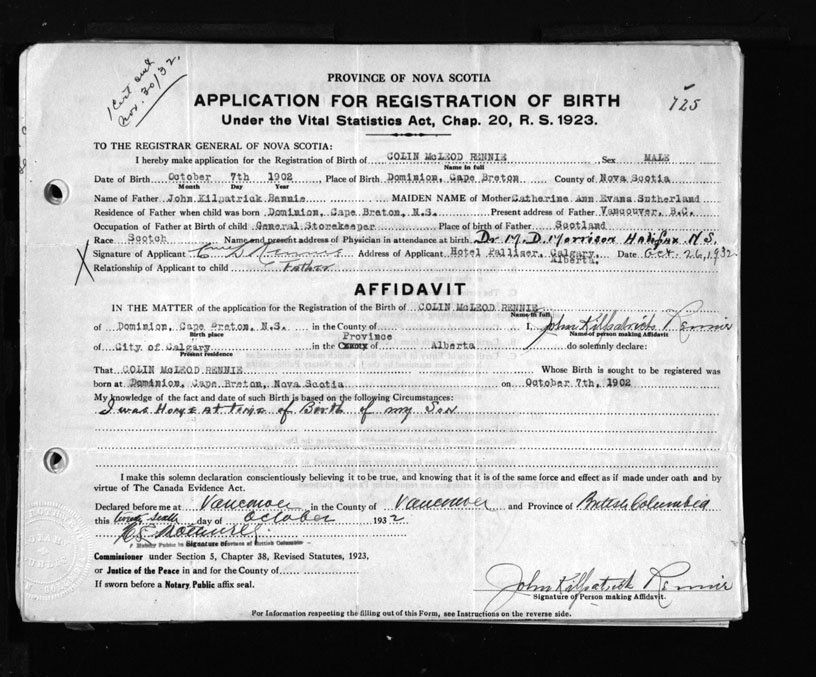 1 Cert and
Nov. 30/32.
725
PROVINCE OF NOVA SCOTIA
APPLICATION FOR REGISTRATION OF BIRTH
Under the Vital Statistics Act, Chap. 20, R. S. 1923.
TO THE REGISTRAR GENERAL OF NOVA SCOTIA:
I hereby make application for the Registration of Birth of COLIN McLEOD RENNIE, Sex MALE
Name in full
Date of Birth October 7th 1902 Place of Birth Dominion, Cape Breton County of Nova Scotia
Month Day Year
Name of Father John Kilpatrick Rennie MAIDEN NAME of Mother Catherine Ann Evans Sutherland
Residence of Father when child was born Dominion, Cape Breton, N.S. Present address of Father Vancouver, B.C.
Occupation of Father at Birth of child General Storekeeper Place of birth of Father Scotland
Race Scotch Name and present address of Physician in attendance at birth Dr M. D. Morrison Halifax N S.
X Signature of Applicant Rennie Address of Applicant Hotel Palliser, Calgary, Alberta. Date Oct. 26, 1932
Relationship of Applicant to child Father
AFFIDAVIT
IN THE MATTER of the application for the Registration of the Birth of COLIN McLEOD RENNIE
Name in full
of Dominion, Cape Breton, N.S. in the County of I, John Kilpatrick Rennie
Birth place Name of person making Affidavit
Province
of City of Calgary in the County of Alberta do solemnly declare:
Present residence
That COLIN McLEOD RENNIE Whose Birth is sought to be registered was
born at Dominion, Cape Breton, Nova Scotia on October 7th, 1902
My knowledge of the fact and date of such Birth is based on the following Circumstances:
I was Home at time of Birth of my Son
I make this solemn declaration conscientiously believing it to be true, and knowing that it is of the same force and effect as if made under oath and by
virtue of The Canada Evidence Act.
Declared before me at Vancouver in the County of Vancouver and Province of British Columbia
this twenty sixth day of October 1932
Notary Public in Signature of Province of British Columbia
Commissioner under Section 5, Chapter 38, Revised Statutes, 1923,
or Justice of the Peace in and for the County of
If sworn before a Notary Public affix seal.
John Kilpatrick Rennie
Signature of Person making Affidavit.
For Information respecting the filling out of this Form, see Instructions on the reverse side.